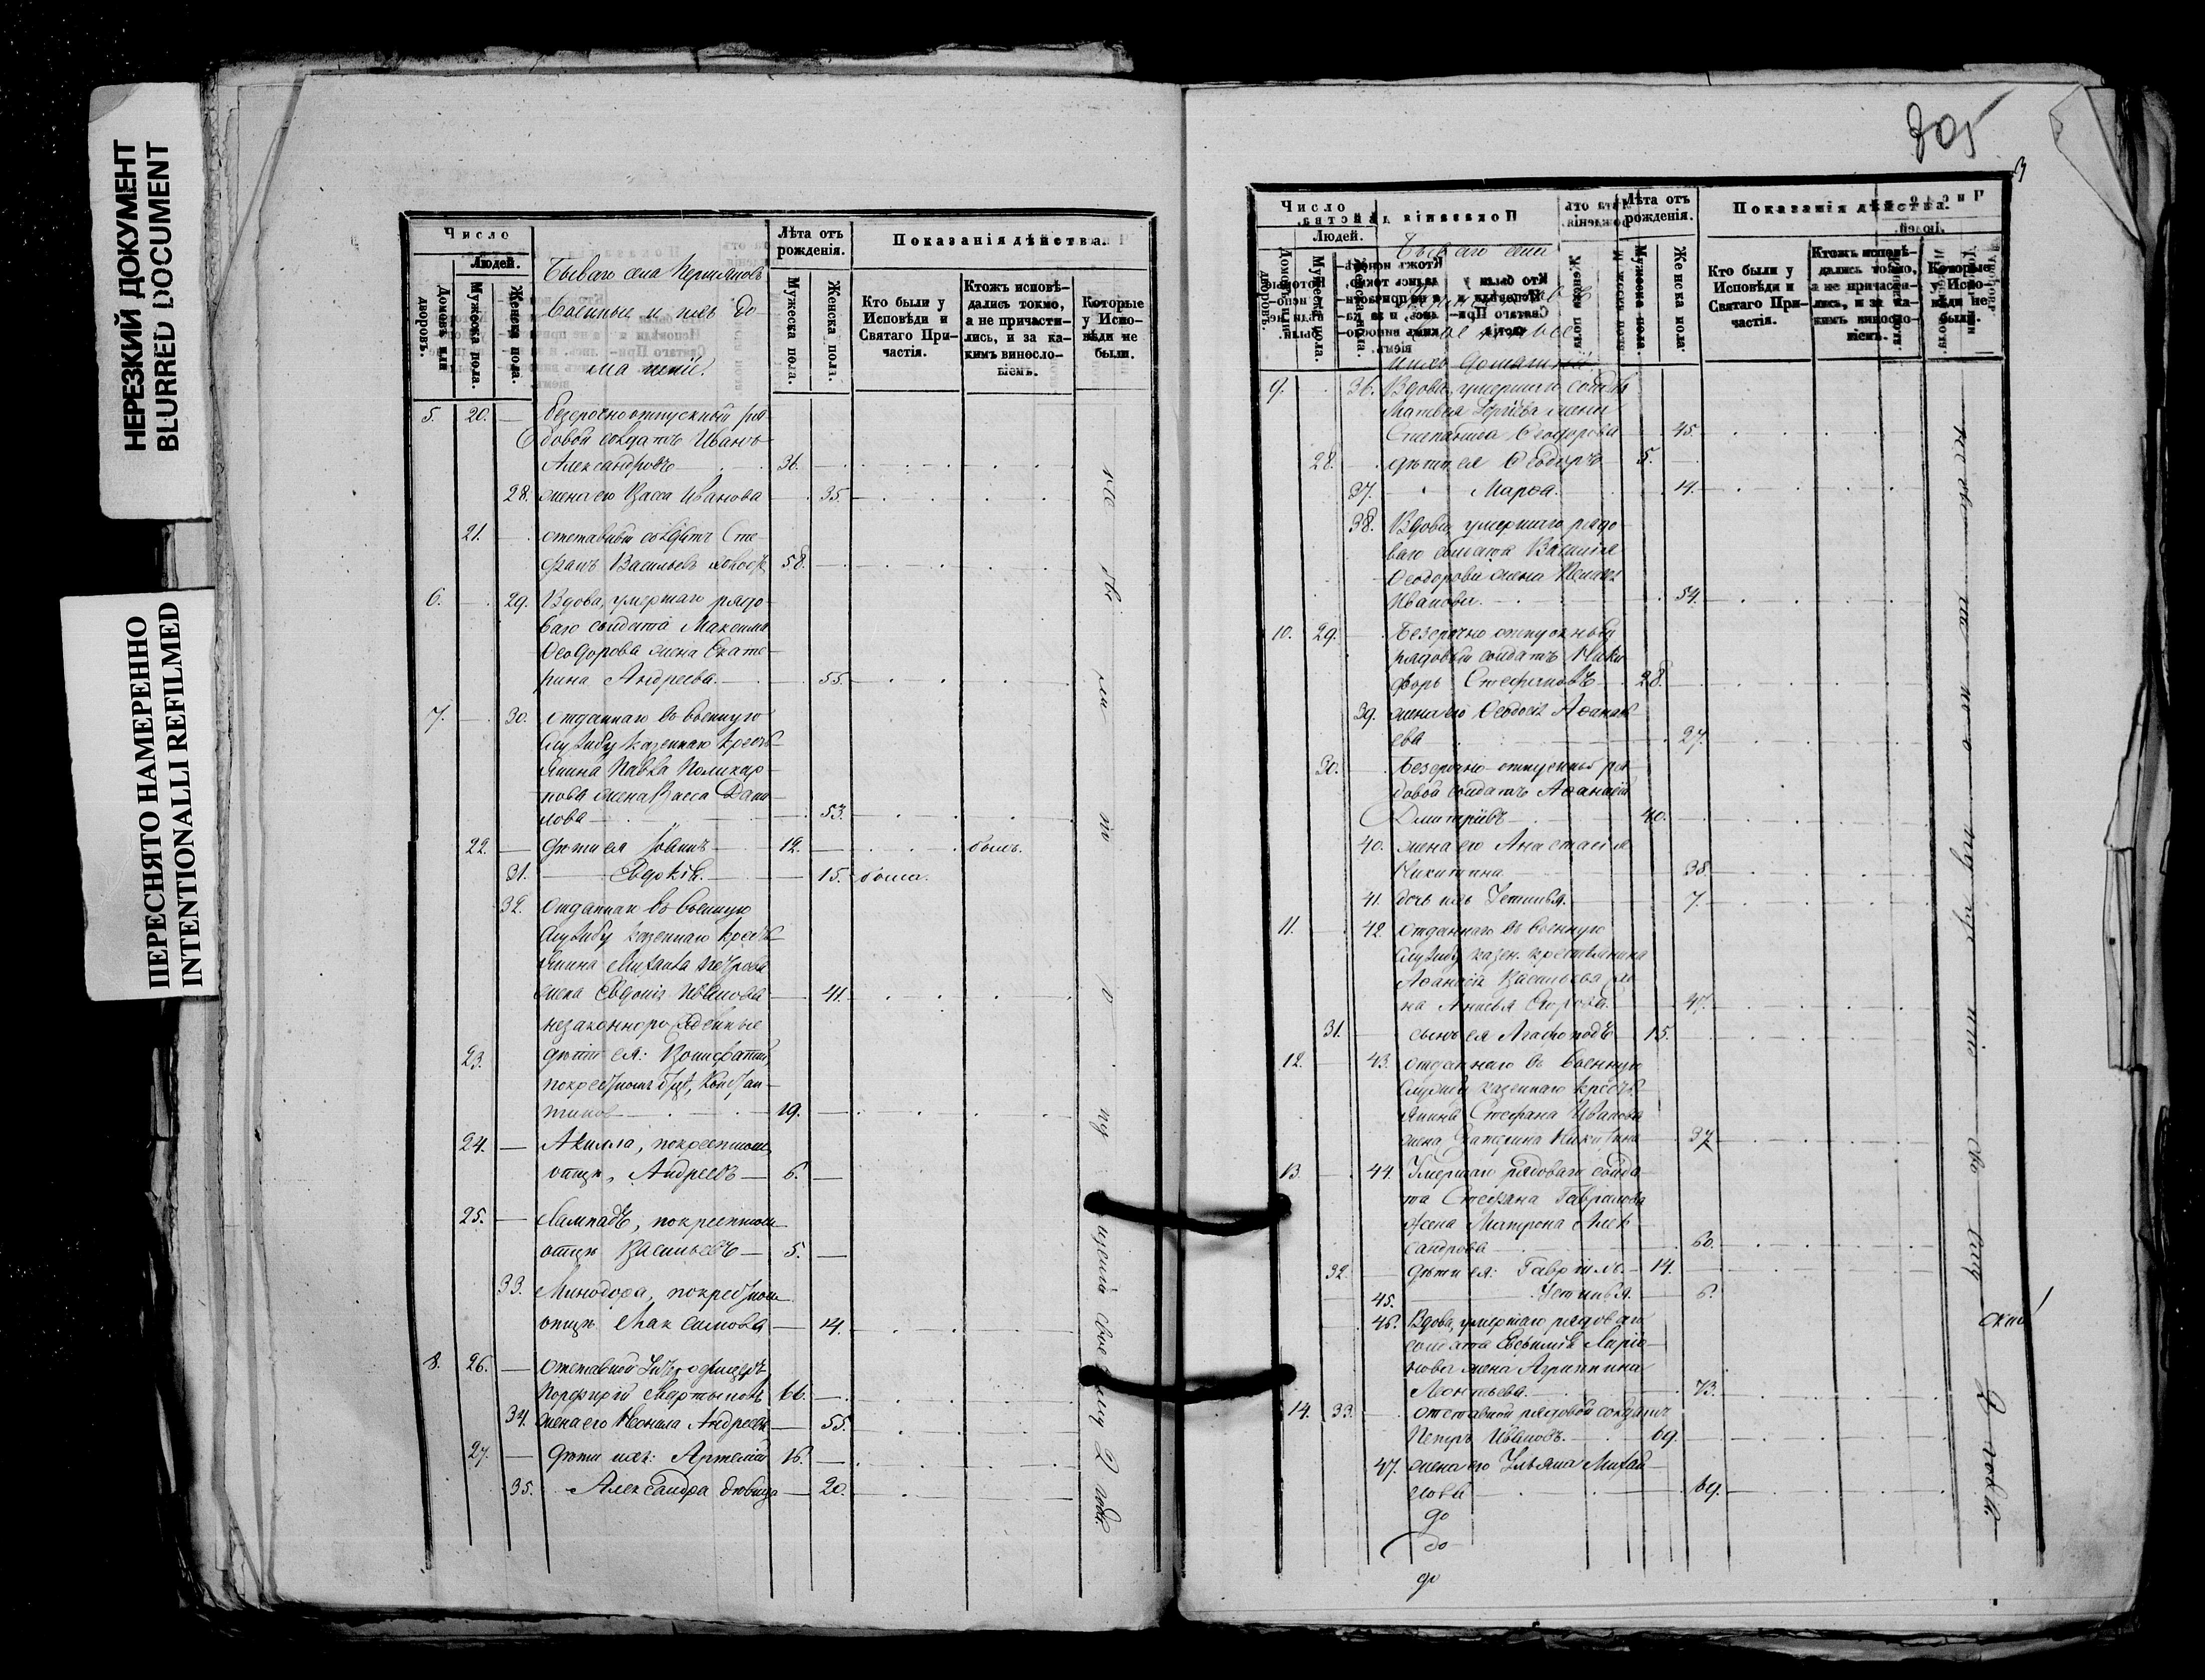 НЕРЕЗКИЙ ДОКУМЕНТ
BLURRED DOCUMENT
ПЕРЕСНЯТО НАМЕРЕННО
INTENTIONALLI REFILMED
Число
Людей.
Домовъ или дворовъ.
Мужеска пола.
Женска пола.
Бываго села
Военные и ихъ до
машніе.
Лѣта отъ рожденія.
Мужеска пола.
Женска пола.
Показанія дѣйства.
Кто были у Исповѣди и Святаго Причастія.
Ктожъ исповѣдались токмо, а не причастились, и за какимъ винословіемъ.
Которые у Исповѣди не были.
5. 20. — безсрочноотпускный ря
довой солдатъ Иванъ
Александровъ 36. —
28. жена его Васса Иванова — 35.
21. — отставный солдатъ Сте
фанъ Васильевъ 58. —
6. — 29. Вдова, умершаго рядо
ваго солдата Максима
Ѳеодорова жена Екате
рина Андреева. — 55.
7. — 30. отданнаго въ военную
службу казеннаго кресть
янина Павла Поликар
пова жена Васса Дани
лова — 53.
22. — дѣти ея 12. — былъ.
31. Евдокія. — 15. была.
32. Отданнаго въ военную
службу казеннаго кресть
янина Михаила Петрова
жена Евдокія Иванова — 41.
незаконнорожденные
23. дѣти ея: Вонифатій,
19. —
24. — Акилла, покрестному
отцу, Андреевъ — 6. —
25. — Лампадъ, покрестному
отцу Васильевъ — 5. —
33. Минодора, покрестному
отцу Максимова — 14.
8. 26. — Отставной Унт. офицеръ
Порфирій Мартыновъ 66. —
34. жена его Неонила Андреева — 55.
27. — дѣти ихъ: Артемій 16. —
35. Александра дѣвица — 20.
805
3
Число
Людей.
Домовъ или дворовъ.
Мужеска пола.
Женска пола.
Бываго села
ихъ домашніе
Лѣта отъ рожденія.
Мужеска пола.
Женска пола.
Показанія дѣйства.
Кто были у Исповѣди и Святаго Причастія.
Ктожъ исповѣдались токмо, а не причастились, и за какимъ винословіемъ.
Которые у Исповѣди не были.
9. 36. Вдова, умершаго солдата
Матвея Сергѣева жена
Степанида Ѳеодорова 45.
28. — дѣти ея Ѳеодоръ 5. —
37. Марѳа. 4.
38. Вдова, умершаго рядо
ваго солдата Василія
Ѳеодорова жена
Иванова. 54.
10. 29. — Безсрочно отпускный
рядовый солдатъ Ники
форъ Стефановъ 28.
39. жена его Ѳеодосія Аѳанась
ева 27.
30. Безсрочно-отпускный ря
довой солдатъ Аѳанасій
Дмитріевъ 40.
40. жена его Анастасія
Никитина 38.
41. дочь ихъ Устинья. 7.
11. — 42. отданнаго въ военную
службу казен. крестьянина
Аѳанасія Васильева же
на Анисья 47.
31. — сынъ ея Агафоподъ 15.
12. — 43. отданнаго въ военную
службу казеннаго кресть
янина Стефана Иванова
жена Екатерина Никитина 37
13. — 44. Умершаго рядоваго солда
та Стефана Гаврилова
жена Матрона Алек
сандрова 60.
32. — дѣти ея: Гавріилъ — 14.
45. Устинья. 6.
46. Вдова, умершаго рядоваго
солдата Евсимія Ларіо
нова жена Агриппина
Леонтьева. 73.
14. 33. — отставной рядовой солдатъ
Петръ Ивановъ. 69.
47. жена его Ульяна Михай
лова 69.
до
до
до